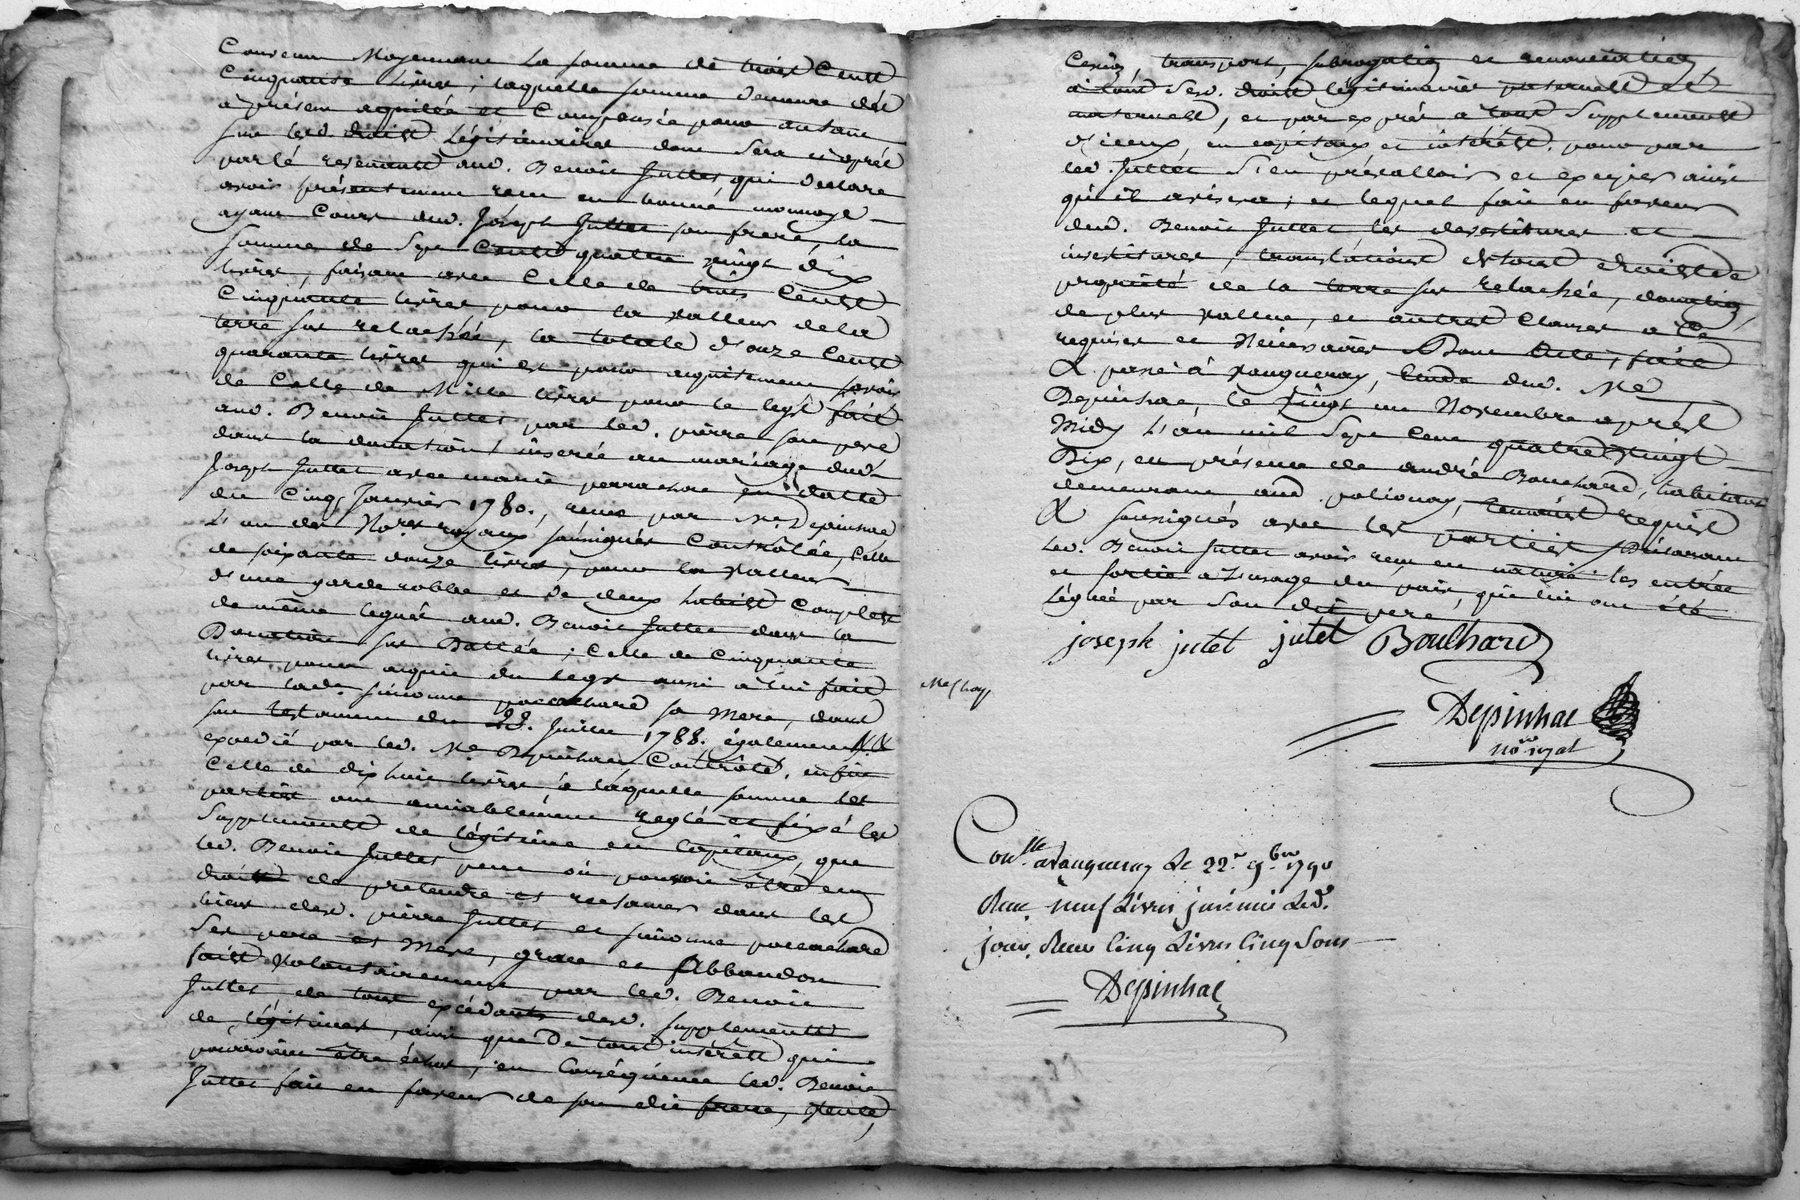 Convenu Moyennant la somme de trois Cent
Cinquante Livres ; laquelle somme demeure dès
à présent acquittée et Compensée pour autant
sur lesd. droits Légitimaires dont Sera cy après
parlé revenants aud. Benoit Juttet, qui declare
avoir présentement recu en bonne monnoye
ayant Cours dud. Joseph Juttet son frere, la
Somme de Sept Cents quatre vingt dix
livres, faisant avec Celle de trois Cents
Cinquante livres pour la valleur de la
terre sus relachée, la totale d'onze Cents
quarante livres qui est pour acquitement savoir
de Celle de Mille livres pour le legs fait
aud. Benoit Juttet par led. pierre son pere
dans la donation inserée au mariage dud.
Joseph Juttet avec marie perrachon en datte
du Cinq Janvier 1780., recus par Me. Depinhac
L'un des Nores royaux soussignés Contrôlée, Celle
de soixante douze livres, pour la valleur
d'une garde robbe et de deux habits Complets
de même legués aud. Benoit Juttet dans la
Donation sus Dattée ; Celle de Cinquante
livres pour acquit du legs aussi à lui fait
par lade. simonne ponchard sa Mere, dans
son testament du 22. Juillet 1788. également
expedié par led. Me Depinhac Contrôlé, enfin
Celle de dix huit livres à laquelle somme les
parties ont amiablement reglé et fixé les
Supplements de légitime en Capitaux, que
led. Benoit Juttet peut où pouvoit être en
droit de prétendre et reclamer dans les
biens desd. pierre Juttet et simonne ponchard
Ses pere et Mere, grace et Abbandon
faits volontairement par led. Benoit
Juttet de tout excédants desd. supplements
de légitimes, ainsi que De tout intérêts qui
pourroient être échus, en Conséquence led. Benoit
Juttet fait en faveur de son dit frere, vente,
Cession, transport, subrogation et renonciation
à tous Ses. droits légitimaires paternels et
maternels, et par exprès à tout Supplements
d'iceux, en capitaux et intérêts, pour par
led. Juttet S'en prévalloir et exiger ainsi
qu'il avisera ; et lequel fait en faveur
dud. Benoit Juttet les devestitures et
investitures, translations de tout droits de
propriété de la terre sus relachée, donation
de plus vallue, et autres Clauses a Ce
requises et Nécessaires Dont Acte, fait
& passé à vaugneray, Etude dud. Me
Depinhac, le vingt un Novembre après
Midy L'an mil Sept Cent quatre Vingt
Dix, en présence de andré Bouchard, habitant
demeurant aud. polionay, temoins requis
& soussignés avec les parties Déclarant
Led. Benoit Juttet avoir reçu en nature les entrée
et sortie à L'usage du païs, qui lui ont été
Légué par Son dit pere
joseph jutet jutet Boulhard
Depinhac
nore royal
Conlle a Vaugneray Le 22. 9bre 1790
Recu neuf Livres
jour. Recu Cinq Livres Cinq Sous
Depinhac